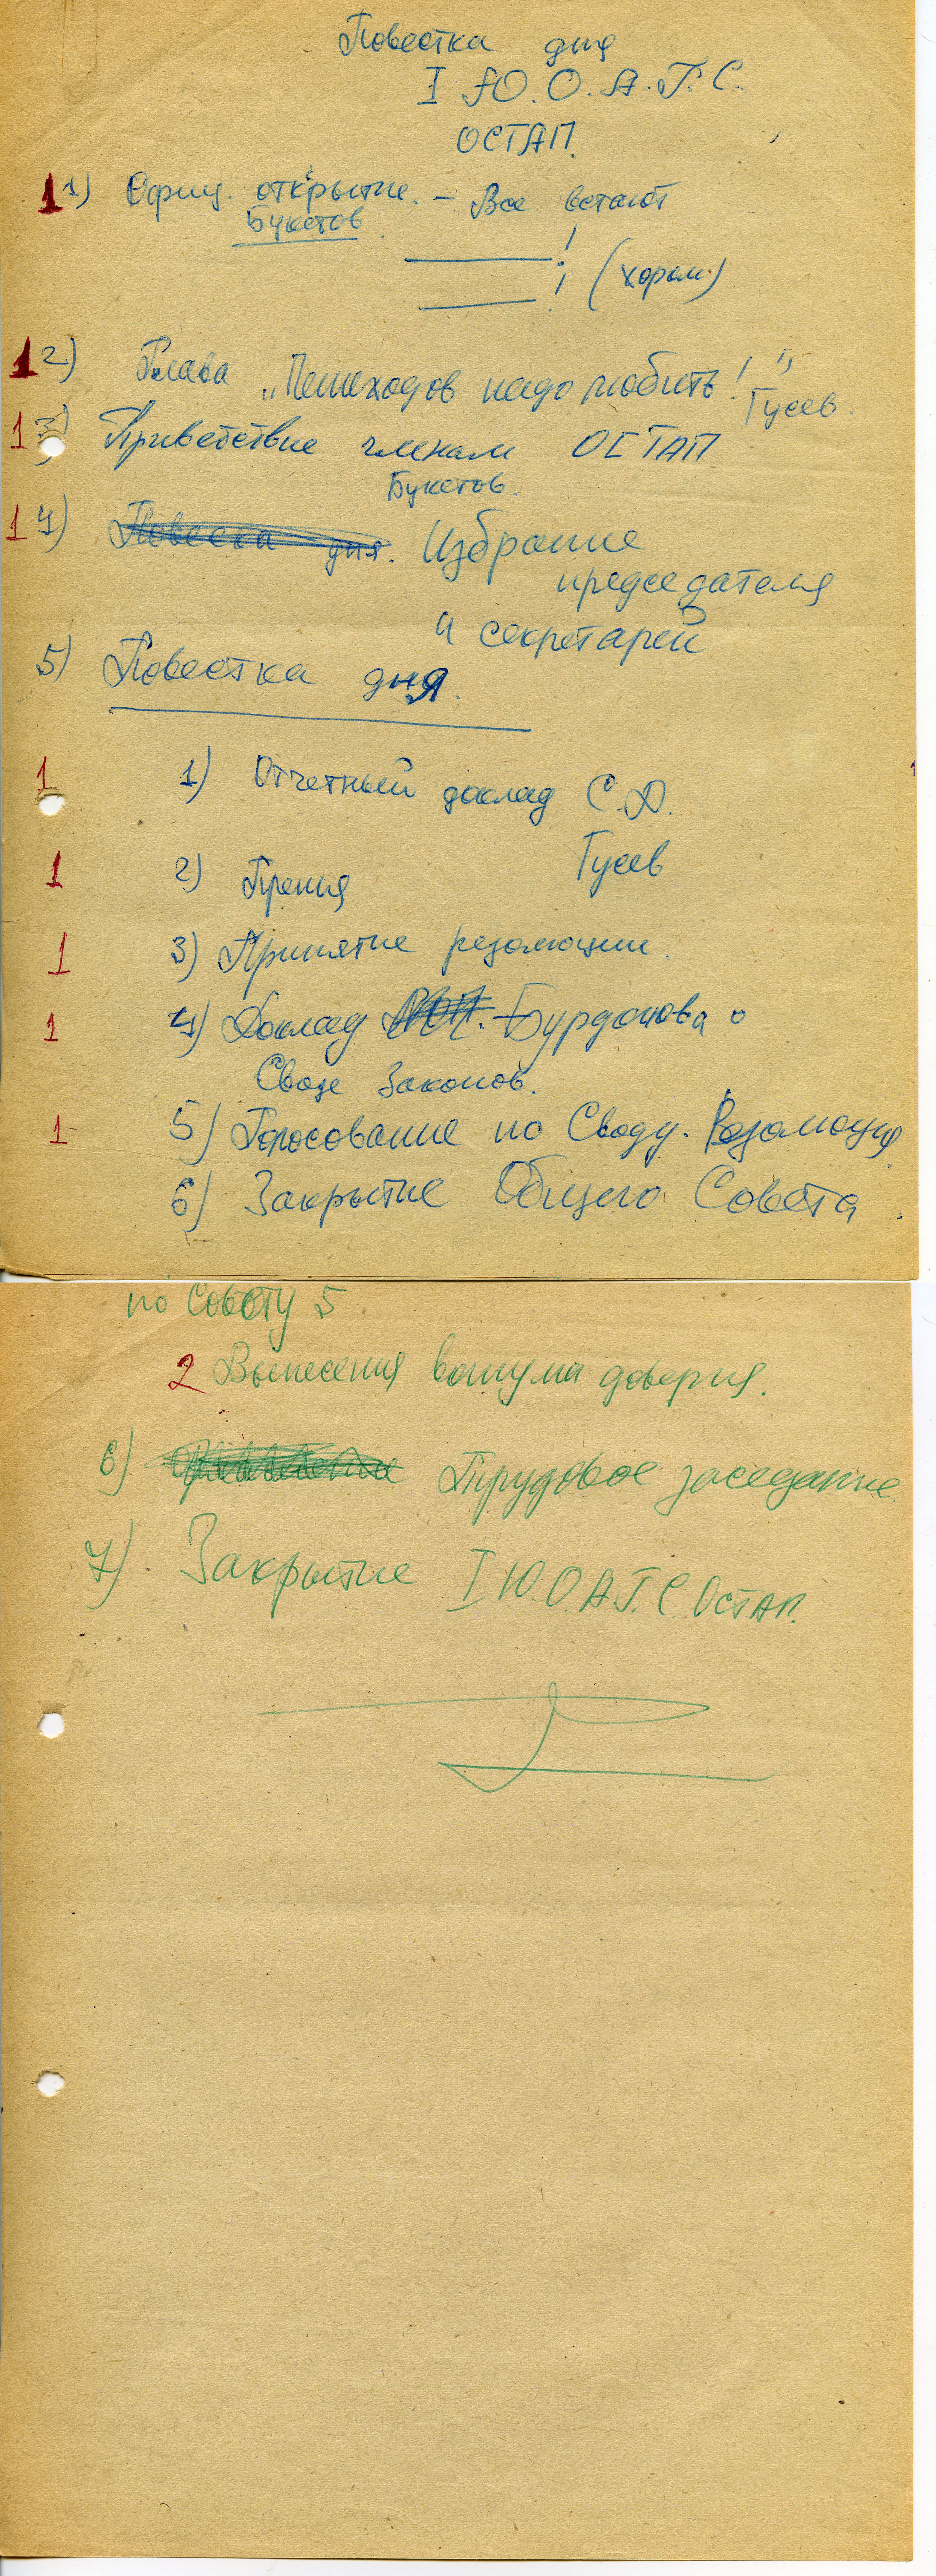 Повестка дня
I Ю.О.А.Г.С.
ОСТАП.
1 1) Офиц. открытие. – Все встают
Букетов
! 
! (хором)
1 2) Глава „Пешеходов надо любить!"
Гусев.
1 3) Приветствие членам ОСТАП
Букетов.
1 4) Повеска дня. Избрание
председателя
и секретарей
5) Повестка дня.
1 1) Отчетный доклад С.Д.
Гусев
1 2) Прения
1 3) Принятие резолюции.
1 4) Доклад Бурдонова о
Своде Законов.
1 5) Голосование по Своду. Резолюция
6) Закрытие Общего Совета.
по Совету 5
2 Вынесения вотума доверия.
6) Трудовое заседание.
7) Закрытие I Ю.О.А.Г.С. Остап.